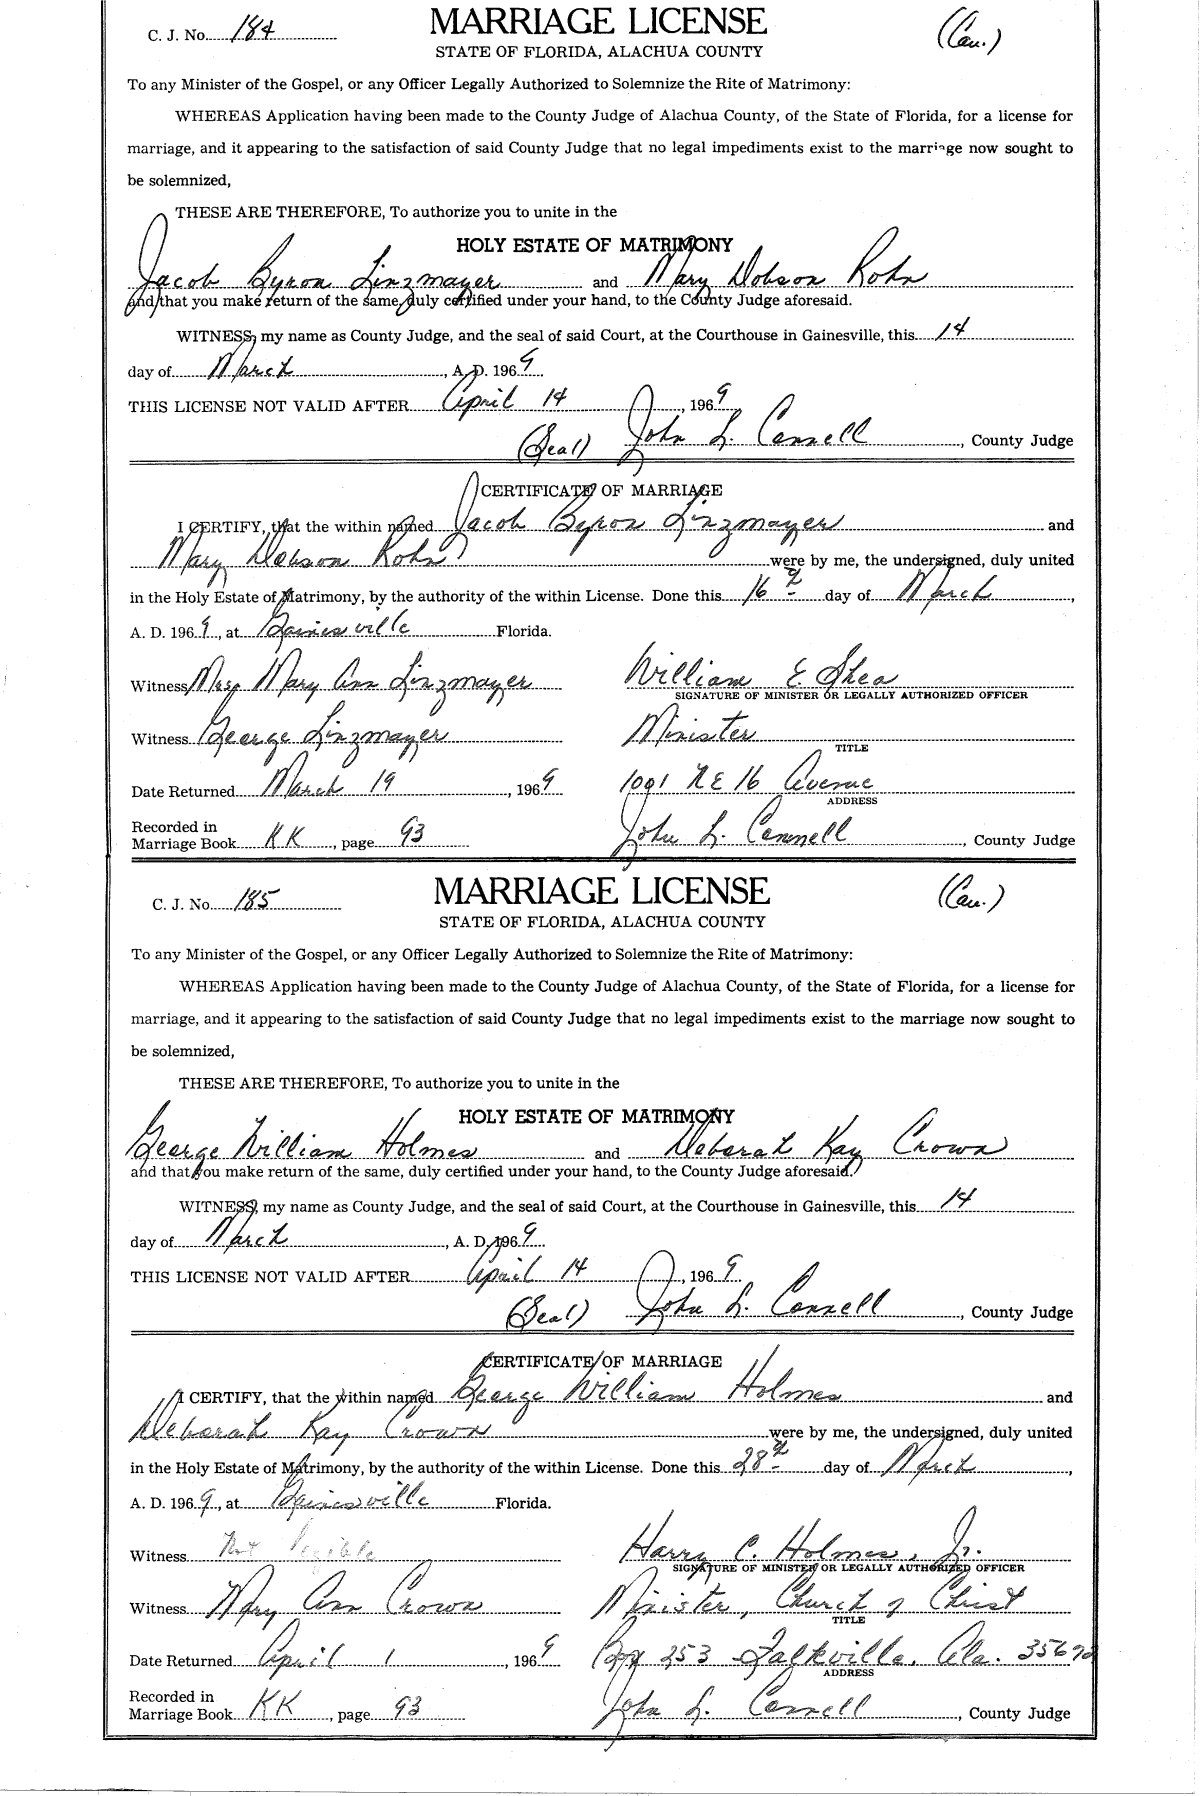 C. J. No. 184 MARRIAGE LICENSE (Cau.)
STATE OF FLORIDA, ALACHUA COUNTY
To any Minister of the Gospel, or any Officer Legally Authorized to Solemnize the Rite of Matrimony:
WHEREAS Application having been made to the County Judge of Alachua County, of the State of Florida, for a license for
marriage, and it appearing to the satisfaction of said County Judge that no legal impediments exist to the marriage now sought to
be solemnized,
THESE ARE THEREFORE, To authorize you to unite in the
HOLY ESTATE OF MATRIMONY
Jacob Byron Linzmayer and Mary Dobson Rohn
and that you make return of the same, duly certified under your hand, to the County Judge aforesaid.
WITNESS, my name as County Judge, and the seal of said Court, at the Courthouse in Gainesville, this 14
day of March, A. D. 1969
THIS LICENSE NOT VALID AFTER April 14, 1969
(Seal) John L. Connell, County Judge
CERTIFICATE OF MARRIAGE
I CERTIFY, that the within named Jacob Byron Linzmayer and
Mary Dobson Rohn were by me, the undersigned, duly united
in the Holy Estate of Matrimony, by the authority of the within License. Done this 16 day of March,
A. D. 1969, at Gainesville Florida.
Witness Mrs. Mary Ann Linzmayer William E. Shea
SIGNATURE OF MINISTER OR LEGALLY AUTHORIZED OFFICER
Witness George Linzmayer Minister
TITLE
Date Returned March 19, 1969 1091 NE 16 Avenue
ADDRESS
Recorded in
Marriage Book KK, page 93 John L. Connell, County Judge
C. J. No. 185 MARRIAGE LICENSE (Cau.)
STATE OF FLORIDA, ALACHUA COUNTY
To any Minister of the Gospel, or any Officer Legally Authorized to Solemnize the Rite of Matrimony:
WHEREAS Application having been made to the County Judge of Alachua County, of the State of Florida, for a license for
marriage, and it appearing to the satisfaction of said County Judge that no legal impediments exist to the marriage now sought to
be solemnized,
THESE ARE THEREFORE, To authorize you to unite in the
HOLY ESTATE OF MATRIMONY
George William Holmes and Deborah Kay Crown
and that you make return of the same, duly certified under your hand, to the County Judge aforesaid.
WITNESS, my name as County Judge, and the seal of said Court, at the Courthouse in Gainesville, this 14
day of March, A. D. 1969
THIS LICENSE NOT VALID AFTER April 14, 1969
(Seal) John L. Connell, County Judge
CERTIFICATE OF MARRIAGE
I CERTIFY, that the within named George William Holmes and
Deborah Kay Crown were by me, the undersigned, duly united
in the Holy Estate of Matrimony, by the authority of the within License. Done this 28 day of March,
A. D. 1969, at Gainesville Florida.
Witness Not Legible Harry C. Holmes, Jr.
SIGNATURE OF MINISTER OR LEGALLY AUTHORIZED OFFICER
Witness Mary Ann Crown Minister, Church of Christ
TITLE
Date Returned April 1, 1969 Box 253 Falkville, Ala.
ADDRESS
Recorded in
Marriage Book KK, page 93 John L. Connell, County Judge